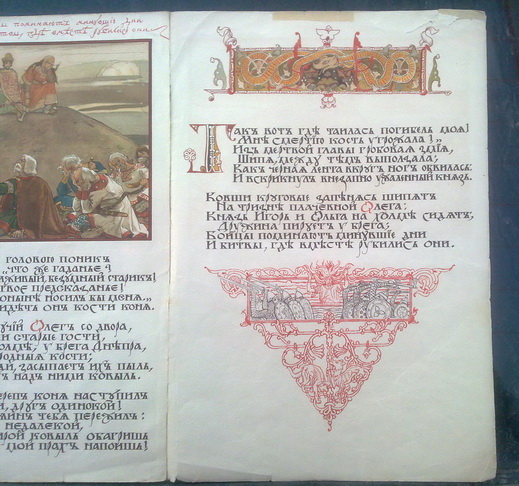 ы поминаютъ минувшiе дни
твы, гдѣ вмѣстѣ рубились они
головою поникъ
„что же гаданье?
лживый, безумный старикъ!
твое предсказанье!
онынѣ носилъ бы меня."
идѣть онъ кости коня.
учiй Олегъ со двора,
и старые гости,
олмѣ, у брега Днѣпра,
родныя кости;
ди, засыпаетъ ихъ пыль,
ъ надъ ними ковыль.
ерепъ коня наступилъ
, другъ одинокой!
инъ тебя пережилъ:
недалекой,
рой ковыль обагришь
мой прахъ напоишь!
Такъ вотъ гдѣ таилась погибель моя!
Мнѣ смертiю кость угрожала!"
Изъ мертвой главы гробовая змѣя,
Шипя, между тѣмъ выползала;
Какъ черная лента вкругъ ногъ обвилась:
И вскрикнулъ внезапно ужаленный князь.
Ковши круговые запѣнясь шипятъ
На тризнѣ плачевной Олега:
Князь Игорь и Ольга на холмѣ сидятъ;
Дружина пируетъ у брега;
Бойцы поминаютъ минувшiе дни
И битвы, гдѣ вмѣстѣ рубились они.